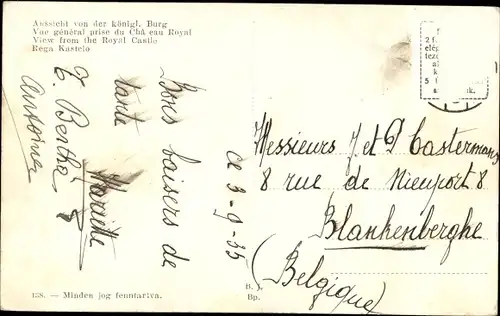 Aussicht von der königl. Burg
Vue général prise du Châ eau Royal
View from the Royal Castle
Rega Kastelo
Bons baisers de
tante
Mariette
Berthe
Antoine
Ce 3-9-35
Messieurs J. et P Castermans
8 rue de Nieuport 8
Blankenberghe
(Belgique)
128. — Minden jog fenntartva.
B. J.
Bp.